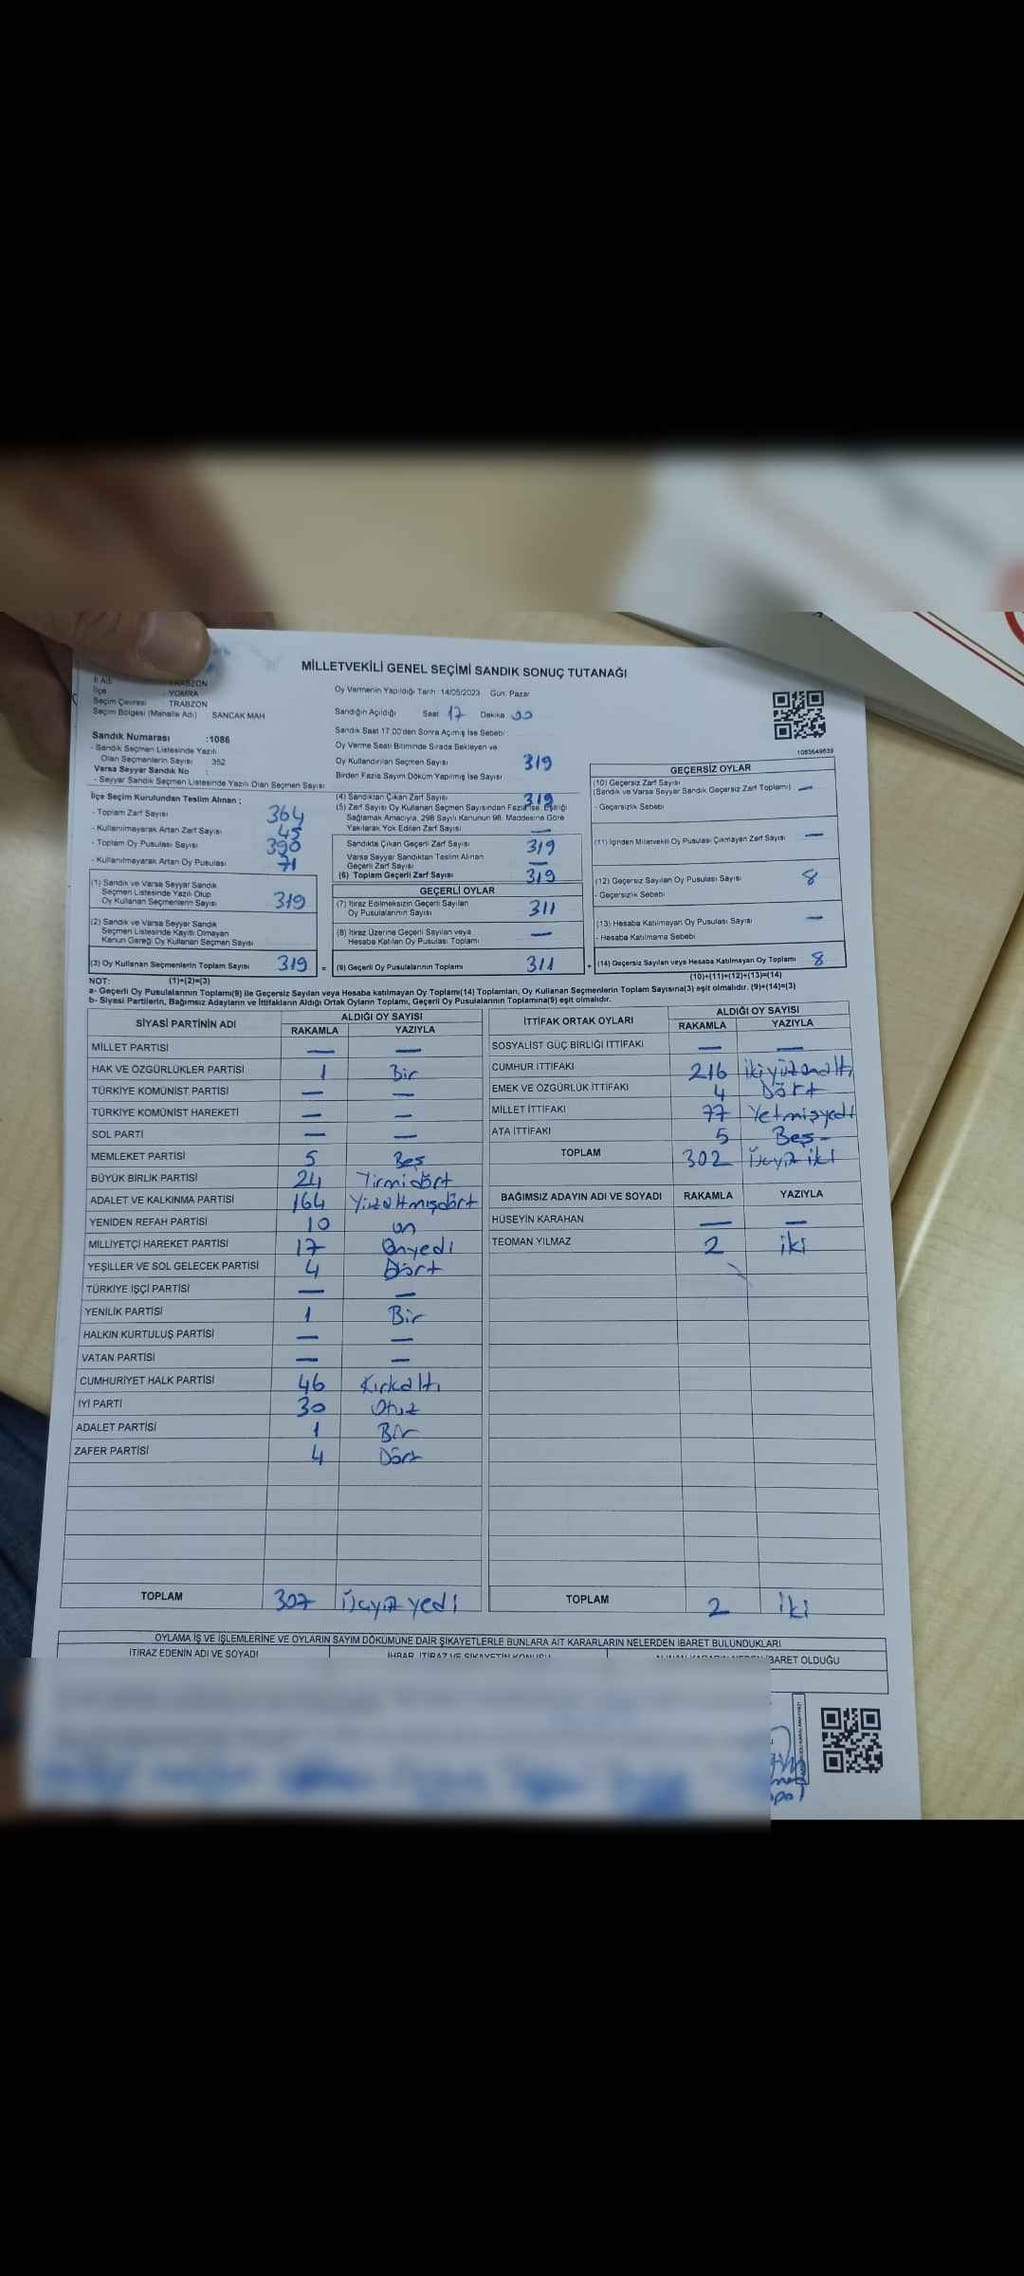 MİLLETVEKİLİ GENEL SEÇİMİ SANDIK SONUÇ TUTANAĞI
TRABZON
İlçe : YOMRA
Seçim Çevresi TRABZON
Seçim Bölgesi (Mahalle Adı) SANCAK MAH
Oy Vermenin Yapıldığı Tarih 14/05/2023 Gün: Pazar
Sandığın Açıldığı Saat 17 Dakika 00
Sandık Numarası :1086
- Sandık Seçmen Listesinde Yazılı
Olan Seçmenlerin Sayısı 352
Varsa Seyyar Sandık No
- Seyyar Sandık Seçmen Listesinde Yazılı Olan Seçmen Sayısı
Sandık Saat 17.00'den Sonra Açılmış İse Sebebi
Oy Verme Saati Bitiminde Sırada Bekleyen ve
Oy Kullandırılan Seçmen Sayısı 319
Birden Fazla Sayım Döküm Yapılmış İse Sayısı
1083649839
İlçe Seçim Kurulundan Teslim Alınan ;
- Toplam Zarf Sayısı 364
- Kullanılmayarak Artan Zarf Sayısı 45
- Toplam Oy Pusulası Sayısı 390
- Kullanılmayarak Artan Oy Pusulası 71
(1) Sandık ve Varsa Seyyar Sandık
Seçmen Listesinde Yazılı Olup
Oy Kullanan Seçmenlerin Sayısı 319
(2) Sandık ve Varsa Seyyar Sandık
Seçmen Listesinde Kayıtlı Olmayan
Kanun Gereği Oy Kullanan Seçmen Sayısı
(3) Oy Kullanan Seçmenlerin Toplam Sayısı 319 =
(1)+(2)=(3)
(4) Sandıktan Çıkan Zarf Sayısı 319
(5) Zarf Sayısı Oy Kullanan Seçmen Sayısından Fazla İse, Eşitliği
Sağlamak Amacıyla, 298 Sayılı Kanunun 98. Maddesine Göre
Yakılarak Yok Edilen Zarf Sayısı —
Sandıkta Çıkan Geçerli Zarf Sayısı 319
Varsa Seyyar Sandıktan Teslim Alınan
Geçerli Zarf Sayısı —
(6) Toplam Geçerli Zarf Sayısı 319
GEÇERLİ OYLAR
(7) İtiraz Edilmeksizin Geçerli Sayılan
Oy Pusulalarının Sayısı 311
(8) İtiraz Üzerine Geçerli Sayılan veya
Hesaba Katılan Oy Pusulası Toplamı —
(9) Geçerli Oy Pusulalarının Toplamı 311 +
GEÇERSİZ OYLAR
(10) Geçersiz Zarf Sayısı
(Sandık ve Varsa Seyyar Sandık Geçersiz Zarf Toplamı) —
- Geçersizlik Sebebi
(11) İçinden Milletvekili Oy Pusulası Çıkmayan Zarf Sayısı —
(12) Geçersiz Sayılan Oy Pusulası Sayısı 8
- Geçersizlik Sebebi
(13) Hesaba Katılmayan Oy Pusulası Sayısı —
- Hesaba Katılmama Sebebi
(14) Geçersiz Sayılan veya Hesaba Katılmayan Oy Toplamı 8
(10)+(11)+(12)+(13)=(14)
NOT:
a- Geçerli Oy Pusulalarının Toplamı(9) ile Geçersiz Sayılan veya Hesaba katılmayan Oy Toplamı(14) Toplamları, Oy Kullanan Seçmenlerin Toplam Sayısına(3) eşit olmalıdır. (9)+(14)=(3)
b- Siyasi Partilerin, Bağımsız Adayların ve İttifakların Aldığı Ortak Oyların Toplamı, Geçerli Oy Pusulalarının Toplamına(9) eşit olmalıdır.
SİYASİ PARTİNİN ADI ALDIĞI OY SAYISI
RAKAMLA YAZIYLA
MİLLET PARTİSİ — —
HAK VE ÖZGÜRLÜKLER PARTİSİ 1 Bir
TÜRKİYE KOMÜNİST PARTİSİ — —
TÜRKİYE KOMÜNİST HAREKETİ — —
SOL PARTİ — —
MEMLEKET PARTİSİ 5 Beş
BÜYÜK BİRLİK PARTİSİ 24 Yirmidört
ADALET VE KALKINMA PARTİSİ 164 Yüzaltmışdört
YENİDEN REFAH PARTİSİ 10 on
MİLLİYETÇİ HAREKET PARTİSİ 17 Onyedi
YEŞİLLER VE SOL GELECEK PARTİSİ 4 Dört
TÜRKİYE İŞÇİ PARTİSİ — —
YENİLİK PARTİSİ 1 Bir
HALKIN KURTULUŞ PARTİSİ — —
VATAN PARTİSİ — —
CUMHURİYET HALK PARTİSİ 46 Kırkaltı
İYİ PARTİ 30 Otuz
ADALET PARTİSİ 1 Bir
ZAFER PARTİSİ 4 Dört
TOPLAM 307 Üçyüz yedi
İTTİFAK ORTAK OYLARI ALDIĞI OY SAYISI
RAKAMLA YAZIYLA
SOSYALİST GÜÇ BİRLİĞİ İTTİFAKI — —
CUMHUR İTTİFAKI 216 ikiyüzonaltı
EMEK VE ÖZGÜRLÜK İTTİFAKI 4 Dört
MİLLET İTTİFAKI 77 Yetmişyedi
ATA İTTİFAKI 5 Beş-
TOPLAM 302 Üçyüz iki
BAĞIMSIZ ADAYIN ADI VE SOYADI RAKAMLA YAZIYLA
HÜSEYİN KARAHAN — —
TEOMAN YILMAZ 2 iki
TOPLAM 2 iki
OYLAMA İŞ VE İŞLEMLERİNE VE OYLARIN SAYIM DÖKÜMÜNE DAİR ŞİKAYETLERLE BUNLARA AİT KARARLARIN NELERDEN İBARET BULUNDUKLARI
İTİRAZ EDENİN ADI VE SOYADI
İHBAR, İTİRAZ VE ŞİKAYETİN KONUSU
İBARET OLDUĞU